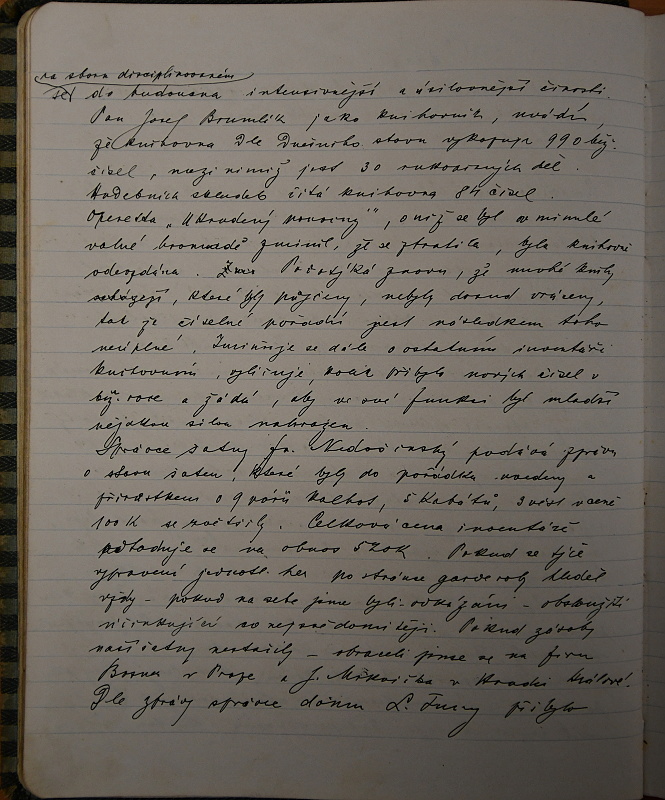 na sboru disciplinovaném
do budoucna intensivnější a úsilovnější činosti.
Pan Josef Brumlík jako knihovník, uvádí,
že knihovna Dle Dnešního stavu vykazuje 990 běž.
čísel, mezi nimiž jest 30 rukopisných děl.
Hudebních skladeb čítá knihovna 84 čísel.
Opereta „Ukradený", o níž se byl v minulé
valné hromadě zmínil, že se ztratila, byla knihovně
odevzdána. znovu, že mnohé knihy
, které byly půjčeny, nebyly dosud vráceny,
tak že číselné pořadí jest následkem toho
neúplné. Zmiňuje se dále o ostatním inventáři
knihovním, vyličuje, kolik přibylo nových čísel v
běž. roce a žádá, aby ve své funkci byl mladší
nějakou silou nahrazen.
Správce šatny podává zprávu
o stavu šaten, které byly do pořádku uvedeny a
přírůstkem o 9 párů kalhot, 5 kabátů, 3 vest v ceně
100 K se zvětšily. Celková cena inventáře
se na obnos 520K. Pokud se týče
vypravení jednotl. her po stránce garderoby hleděl
vždy - pokud na sebe jsme byli odkázáni -
účinkující co nejsvědomitěji. Pokud zásoby
naší šatny nestačily - obraceli jsme se na firmu
v Praze a J. v Hradci Králové.
Dle zprávy správce domu L. přibylo